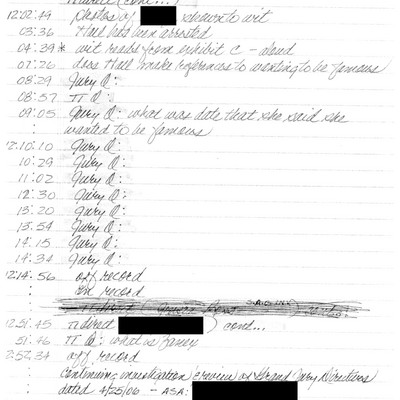 (cont...)
12:02:49 photos of shown to wit
03:36 Hall had been arrested
04:39 * wit reads from exhibit C - aloud
07:26 does Hall make references to wanting to be famous
08:29 Jury Q:
08:57 π Q:
09:05 Jury Q: what was date that she said she
: wanted to be famous
12:10:10 Jury Q:
10:29 Jury Q:
11:02 Jury Q:
12:30 Jury Q:
13:20 Jury Q:
13:54 Jury Q:
14:15 Jury Q:
14:34 Jury Q:
12:14:56 off record
: on record
:
12:51:45 π direct cont...
51:46 π Q: what is
:52:34 off record
: continuing investigation &review of Grand Jury Directives
: dated 4/25/06 - ASA: